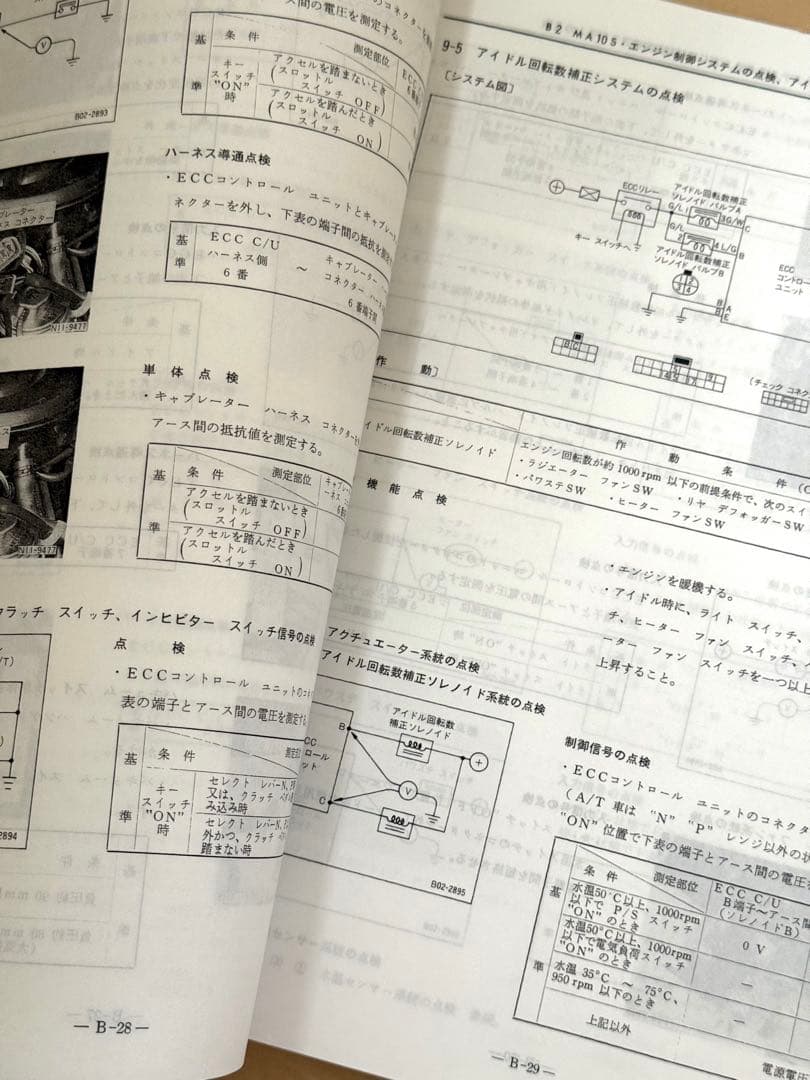 ース間の電圧を測定する。
条件
測定部位
基
準
キー
スイッチ
"ON"
時
アクセルを踏まないとき
(スロットル
スイッチ OFF)
アクセルを踏んだとき
(スロットル
スイッチ ON)
B02-2893
ハーネス導通点検
・ECCコントロール ユニットとキャブレ
ネクターを外し、下表の端子間の抵抗を
基
準
ECC C/U
ハーネス側
6 番
～
キャブレーター
コネクター
6番端子
N11-9477
単体点検
・キャブレーター ハーネス コネクター
アース間の抵抗値を測定する。
基
準
条件
測定部位
アクセルを踏まないとき
(スロットル
スイッチ OFF)
アクセルを踏んだとき
(スロットル
スイッチ ON)
N11-9477
クラッチ スイッチ、インヒビター スイッチ信号の点検
点検
・ECCコントロール ユニットの
表の端子とアース間の電圧を測定す
基
準
条件
キー
スイッチ
"ON"
時
セレクト レバーN、P
又は、クラッチ
み込み時
セレクト レバーN、
外かつ、クラッチ
踏まない時
2894
— B-28 —
B2 MA10S・エンジン制御システムの点検、アイ
9-5 アイドル回転数補正システムの点検
〔システム図〕
ECCリレー
アイドル回転数補正
ソレノイド バルブA
G/L
3G/W
C
G/L
2
4L/G
B
アイドル回転数補正
ソレノイド バルブB
キー スイッチへ
ECC
コントロ
ユニット
B A
B E
〔チェック コネク
作動〕
アイドル回転数補正ソレノイド
作動条件
エンジン回転数が約1000rpm 以下の前提条件で、次のスイ
・ラジエーター ファンSW
・リヤ デフォッガーSW
・パワステSW
・ヒーター ファンSW
機能点検
・エンジンを暖機する。
・アイドル時に、ライト スイッチ、
チ、ヒーター ファン スイッチ、
ーター ファン スイッチを一つ以上
上昇すること。
アクチュエーター系統の点検
アイドル回転数補正ソレノイド系統の点検
アイドル回転数
補正ソレノイド
B
C
V
B02-2895
制御信号の点検
・ECCコントロール ユニットのコネクタ
(A/T 車は "N" "P" レンジ以外の状
"ON"位置で下表の端子とアース間の電圧
基
準
条件
測定部位
ECC C/U
B端子～アース間
(ソレノイドB)
水温50°C以上、1000rpm
以下で P/S スイッチ
"ON" のとき
0 V
水温50°C以上、1000rpm
以下で電気負荷スイッチ
"ON" のとき
—
水温 35°C ～ 75°C、
950 rpm 以下のとき
—
上記以外
電源電圧
— B-29 —